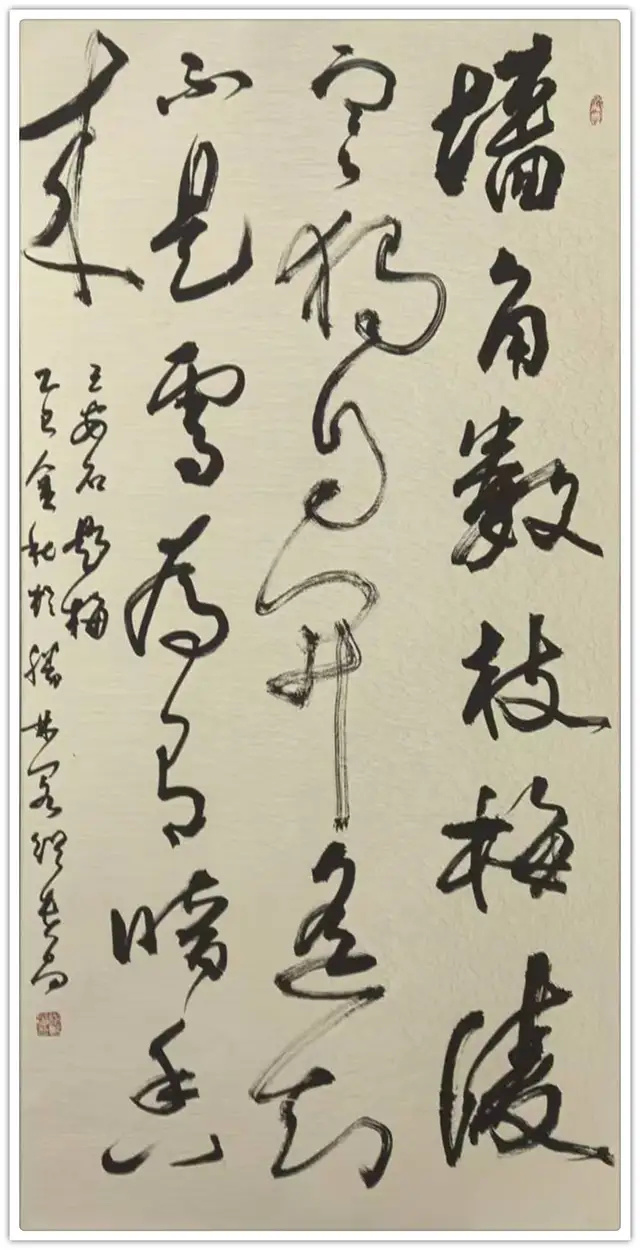 墙角数枝梅凌
寒独自开遥知
不是雪为有暗香
来
王安石题梅
乙巳金秋於